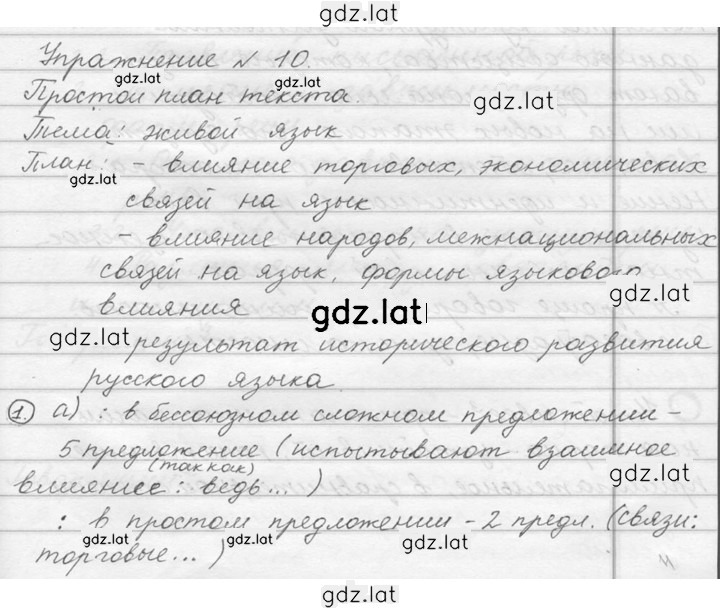 gdz.lat
Упражнение № 10.
gdz.lat
Простой план текста.
gdz.lat
Тема: живой язык
План: - влияние торговых, экономических
gdz.lat
связей на язык
- влияние народов, межнациональных
связей на язык, формы языкового
gdz.lat
влияния
gdz.lat
gdz.lat
результат исторического развития
русского языка.
1. а) : в бессоюзном сложном предложении -
5 предложение (испытывают взаимное
(так как)
gdz.lat
влияниее : ведь... )
: в простом предложении - 2 предл. (связи:
gdz.lat gdz.lat gdz.lat
торговые... )
gdz.lat